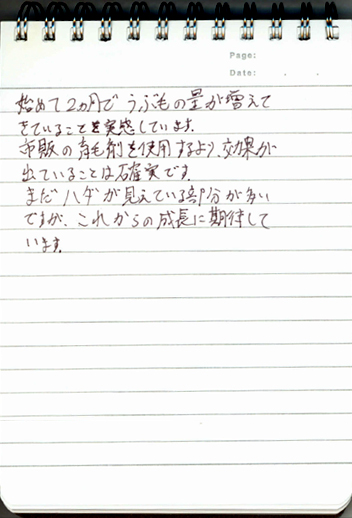 Page:
Date:
始めて2ヵ月でうぶ毛の量が増えて
きていることを実感しています。
市販の育毛剤を使用するより、効果が
出ていることは確実です。
まだハダが見えている部分が多い
ですが、これからの成長に期待して
います。